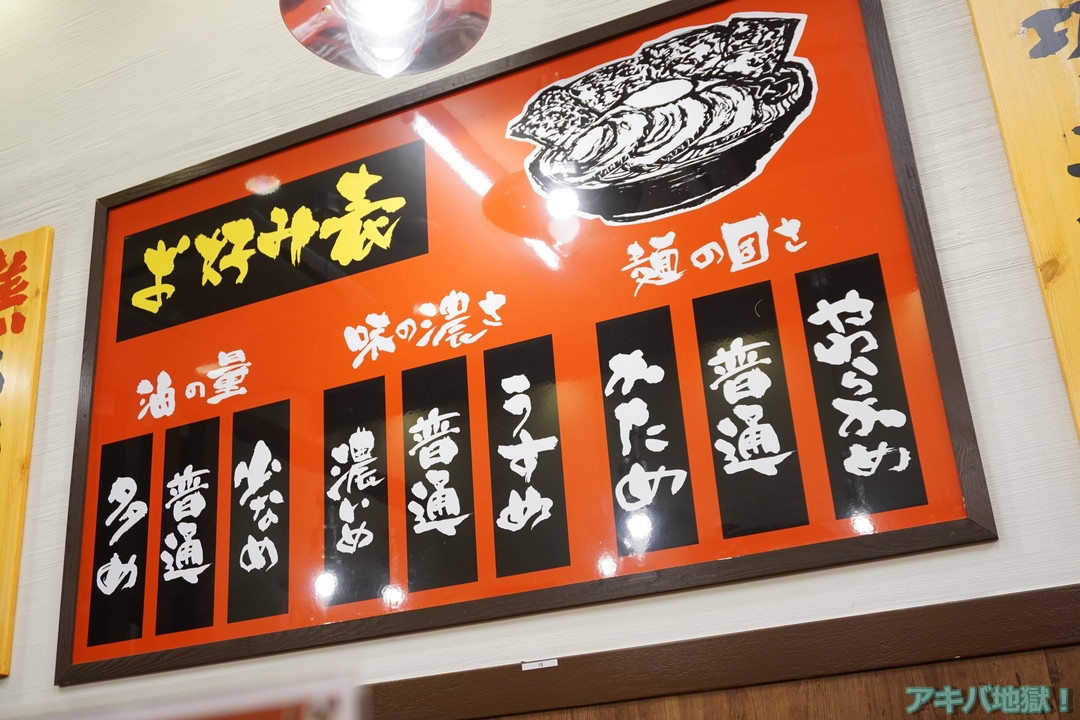 お好み表
麺の固さ
やわらかめ
普通
かため
味の濃さ
うすめ
普通
濃いめ
油の量
少なめ
普通
多め
アキバ地獄！